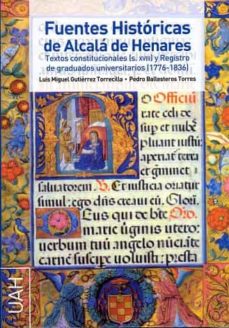 Fuentes Históricas
de Alcalá de Henares
Textos constitucionales (s. XVII) y Registro
de graduados universitarios (1776-1836)
Luis Miguel Gutiérrez Torrecilla • Pedro Ballesteros Torres
Officiũ
rate celi de
sup et nubẽ
pluant iustũ:
aperiatur terra
et gminet
saluatorem. Et iustitia oriatur
simul: ego dñs creaui eũ. Glorĩ.
Deus qui de btẽ Oro.
marie uirginis utero:
uerbum tuũ angelo nũciãte
carnẽ suscipe uoluisti: presta
UAH